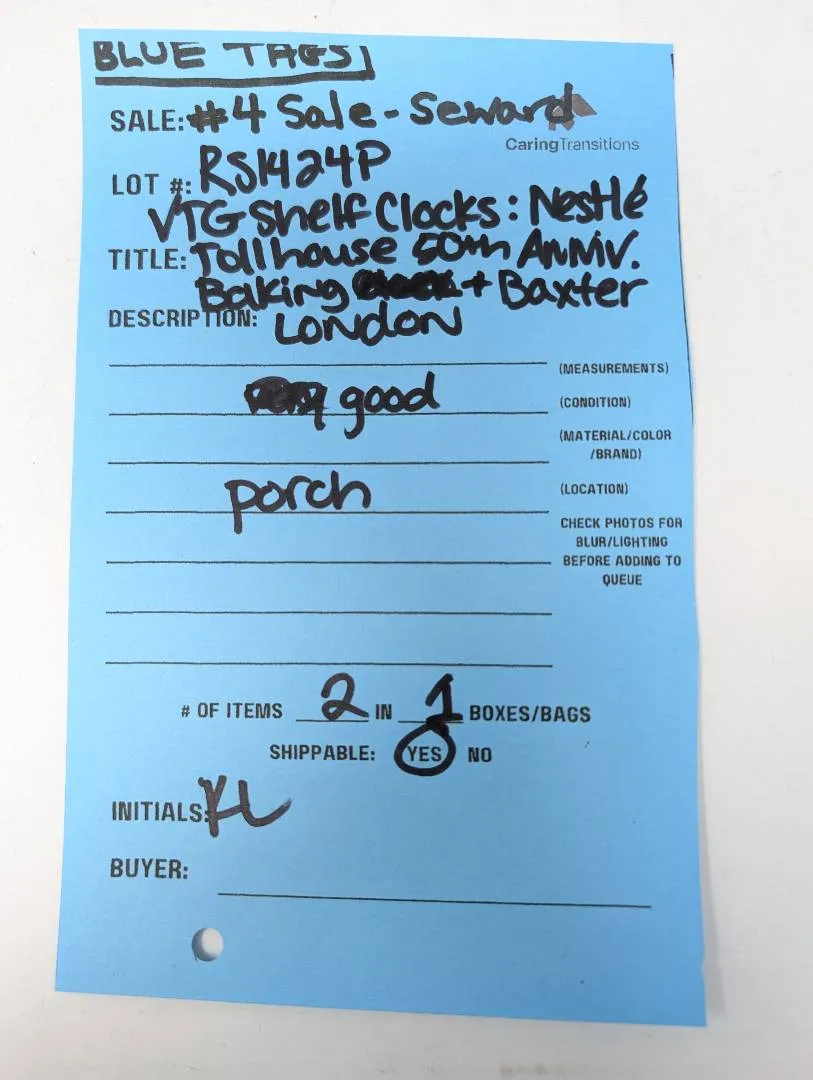 BLUE TAGS
SALE: #4 Sale - Seward
CaringTransitions
LOT #: RS1424P
VTG Shelf Clocks: Nestlé
TITLE: Tollhouse 50th Anniv.
Baking + Baxter
DESCRIPTION: London
(MEASUREMENTS)
good (CONDITION)
(MATERIAL/COLOR
/BRAND)
porch (LOCATION)
CHECK PHOTOS FOR
BLUR/LIGHTING
BEFORE ADDING TO
QUEUE
# OF ITEMS 2 IN 1 BOXES/BAGS
SHIPPABLE: YES NO
INITIALS: KL
BUYER: